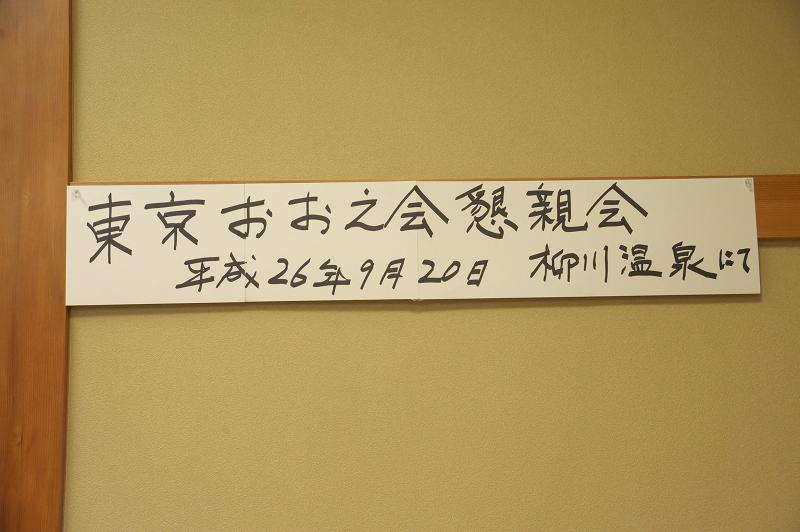 東京おおえ会懇親会
平成26年9月20日 柳川温泉にて